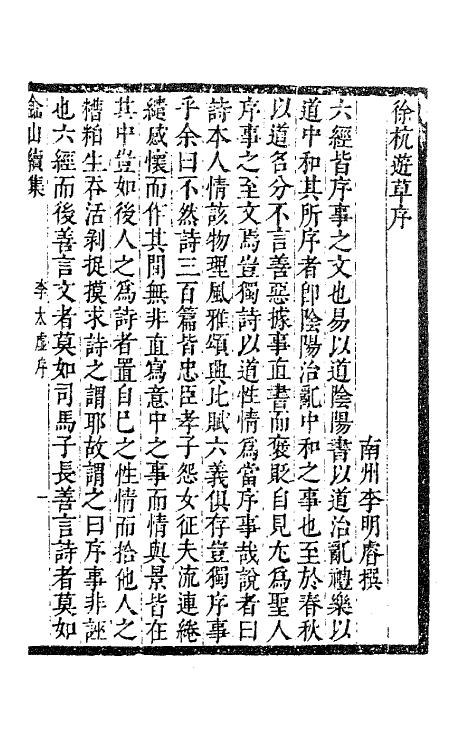 徐杭遊草序
南州李明睿撰
六經皆序事之文也易以道陰陽書以道治亂禮樂以
道中和其所序者卽陰陽治亂中和之事也至於春秋
以道名分不言善惡據事直書而褒貶自見尤爲聖人
序事之至文焉豈獨詩以道性情爲當序事哉說者曰
詩本人情該物理風雅頌興比賦六義俱存豈獨序事
乎余曰不然詩三百篇皆忠臣孝子怨女征夫流連綣
繾感懷而作其間無非直寫意中之事而情與景皆在
其中豈如後人之爲詩者置自己之性情而拾他人之
糟粕生吞活剝捉摸求詩之謂耶故謂之曰序事非誣
也六經而後善言文者莫如司馬子長善言詩者莫如
龠山續集
李太虛序
一